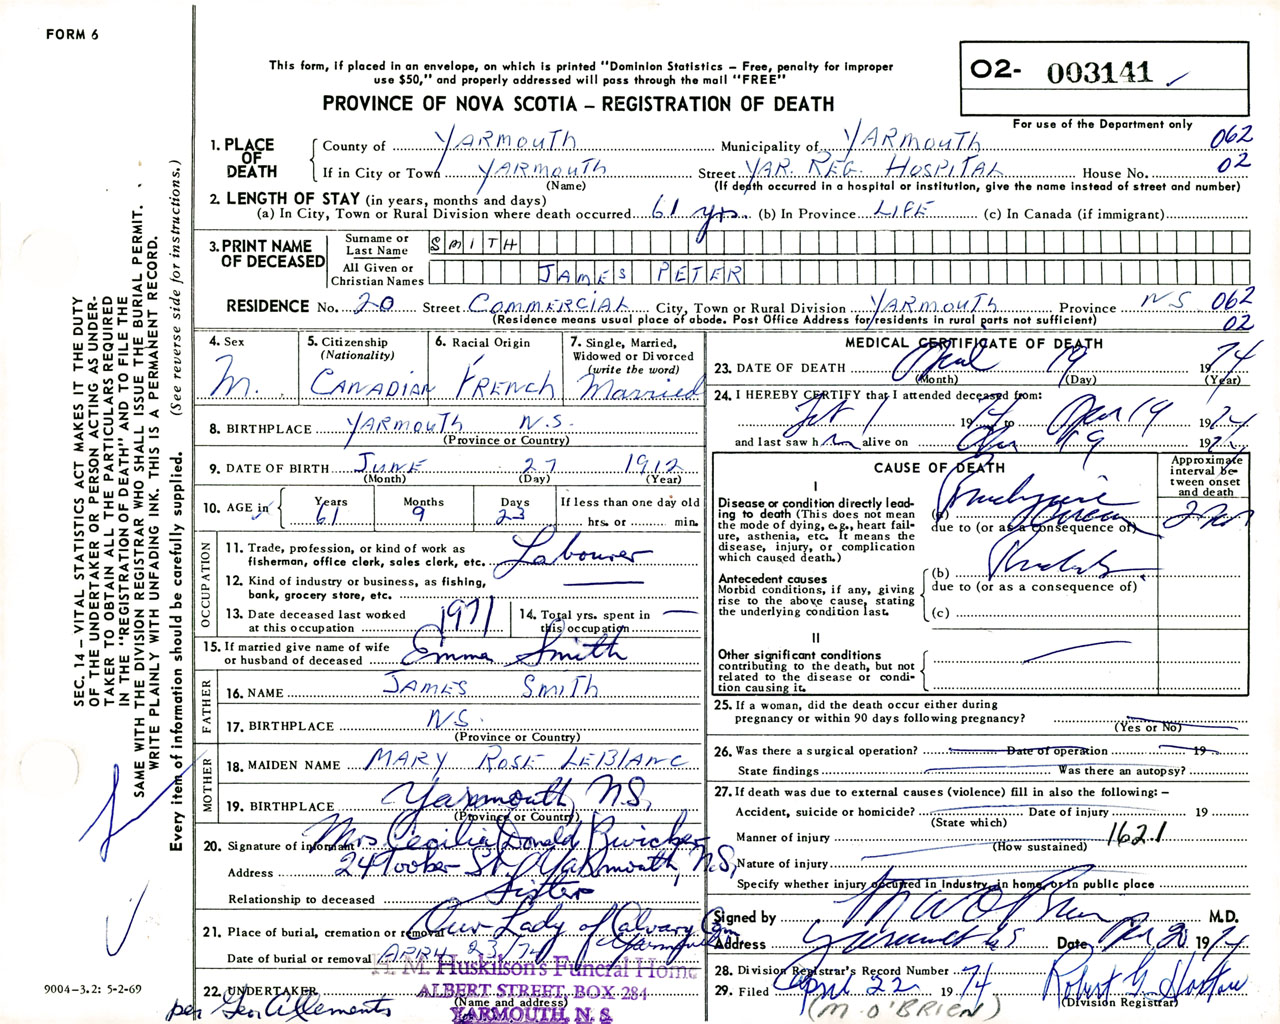 FORM 6
This form, if placed in an envelope, on which is printed "Dominion Statistics – Free, penalty for improper
use $50," and properly addressed will pass through the mail "FREE"
PROVINCE OF NOVA SCOTIA – REGISTRATION OF DEATH
02- 003141
For use of the Department only
1. PLACE OF DEATH
County of YARMOUTH Municipality of YARMOUTH 062
If in City or Town YARMOUTH Street YAR. REG. HOSPITAL House No. 02
(Name) (If death occurred in a hospital or institution, give the name instead of street and number)
2. LENGTH OF STAY (in years, months and days)
(a) In City, Town or Rural Division where death occurred 61 yrs. (b) In Province LIFE (c) In Canada (if immigrant)
3. PRINT NAME OF DECEASED
Surname or Last Name SMITH
All Given or Christian Names JAMES PETER
RESIDENCE No. 20 Street COMMERCIAL City, Town or Rural Division YARMOUTH Province NS 062
(Residence means usual place of abode. Post Office Address for residents in rural parts not sufficient) 02
4. Sex M.
5. Citizenship (Nationality) CANADIAN
6. Racial Origin FRENCH
7. Single, Married, Widowed or Divorced (write the word) Married
8. BIRTHPLACE YARMOUTH N.S.
(Province or Country)
9. DATE OF BIRTH JUNE 27 1912
(Month) (Day) (Year)
10. AGE in Years 61 Months 9 Days 23 If less than one day old hrs. or min.
OCCUPATION
11. Trade, profession, or kind of work as
fisherman, office clerk, sales clerk, etc. Labourer
12. Kind of industry or business, as fishing,
bank, grocery store, etc.
13. Date deceased last worked
at this occupation 1971
14. Total yrs. spent in
this occupation
15. If married give name of wife
or husband of deceased Emma Smith
FATHER
16. NAME JAMES SMITH
17. BIRTHPLACE N.S.
(Province or Country)
MOTHER
18. MAIDEN NAME MARY ROSE LEBLANC
19. BIRTHPLACE Yarmouth, N.S.
(Province or Country)
20. Signature of informant Mrs Cecilia Donald
Address 24 St. Yarmouth, N.S,
Relationship to deceased Sister
21. Place of burial, cremation or removal Our Lady of Calvary Cem
Yarmouth
Date of burial or removal APRIL 23/74
H. M. Huskilson's Funeral Home
22. UNDERTAKER ALBERT STREET, BOX 284
(Name and address)
YARMOUTH, N. S.
per Geo A Clements
MEDICAL CERTIFICATE OF DEATH
23. DATE OF DEATH April 19 1974
(Month) (Day) (Year)
24. I HEREBY CERTIFY that I attended deceased from:
1974 to April 19 1974
and last saw him alive on 19 19
CAUSE OF DEATH
Approximate interval between onset and death
I
Disease or condition directly leading
to death (This does not mean
the mode of dying, e.g., heart failure,
asthenia, etc. It means the
disease, injury, or complication
which caused death.)
(a)
due to (or as a consequence of)
Antecedent causes
Morbid conditions, if any, giving
rise to the above cause, stating
the underlying condition last.
(b)
due to (or as a consequence of)
(c)
II
Other significant conditions
contributing to the death, but not
related to the disease or condition
causing it.
25. If a woman, did the death occur either during
pregnancy or within 90 days following pregnancy?
(Yes or No)
26. Was there a surgical operation? Date of operation 19
State findings Was there an autopsy?
27. If death was due to external causes (violence) fill in also the following: –
Accident, suicide or homicide? Date of injury 19
(State which)
Manner of injury 162.1
(How sustained)
Nature of injury
Specify whether injury occurred in industry, in home, or in public place
Signed by M W O'Brien M.D.
Address Yarmouth NS Date Apr 20 1974
28. Division Registrar's Record Number 74
29. Filed April 22 1974 Robert G.
(Division Registrar)
(M. O'BRIEN)
SEC. 14 – VITAL STATISTICS ACT MAKES IT THE DUTY
OF THE UNDERTAKER OR PERSON ACTING AS UNDER-
TAKER TO OBTAIN ALL THE PARTICULARS REQUIRED
IN THE "REGISTRATION OF DEATH" AND TO FILE THE
SAME WITH THE DIVISION REGISTRAR WHO SHALL ISSUE THE BURIAL PERMIT.
WRITE PLAINLY WITH UNFADING INK. THIS IS A PERMANENT RECORD.
Every item of information should be carefully supplied. (See reverse side for instructions.)
9004-3.2: 5-2-69